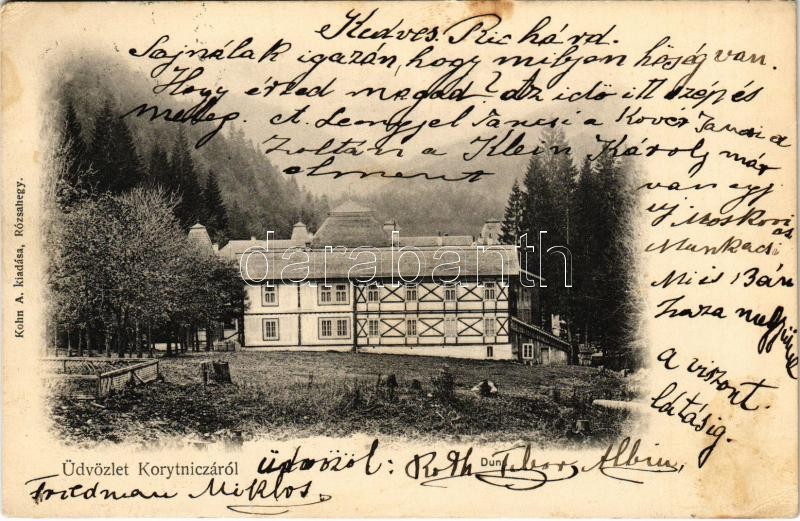 Kedves Richárd.
Sajnálak igazán, hogy milyen hőség van.
Hogy érzed magad? Az idő itt szép és
meleg. A Lengyel Jancsi a Kovér Jancsi a
Zoltán a Klein Károly már
elment
van egy
új Moskovi
és
Munkácsi
Mi is 13án
haza megyünk
a viszont
látásig.
darabanth
Kohn A. kiadása, Rózsahegy.
Üdvözlet Korytniczáról
üdvözöl: Roth Tibor, Albin,
Friedman Miklós.